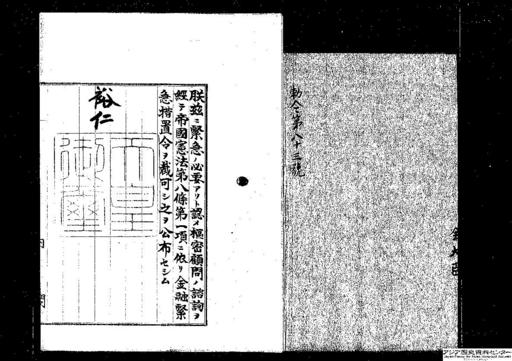 勅令第八十三號
朕玆ニ緊急ノ必要アリト認メ樞密顧問ノ諮詢ヲ
經テ帝國憲法第八條第一項ニ依リ金融緊
急措置令ヲ裁可シ之ヲ公布セシム
裕仁
天皇
御璽
内 閣
アジア歴史資料センター